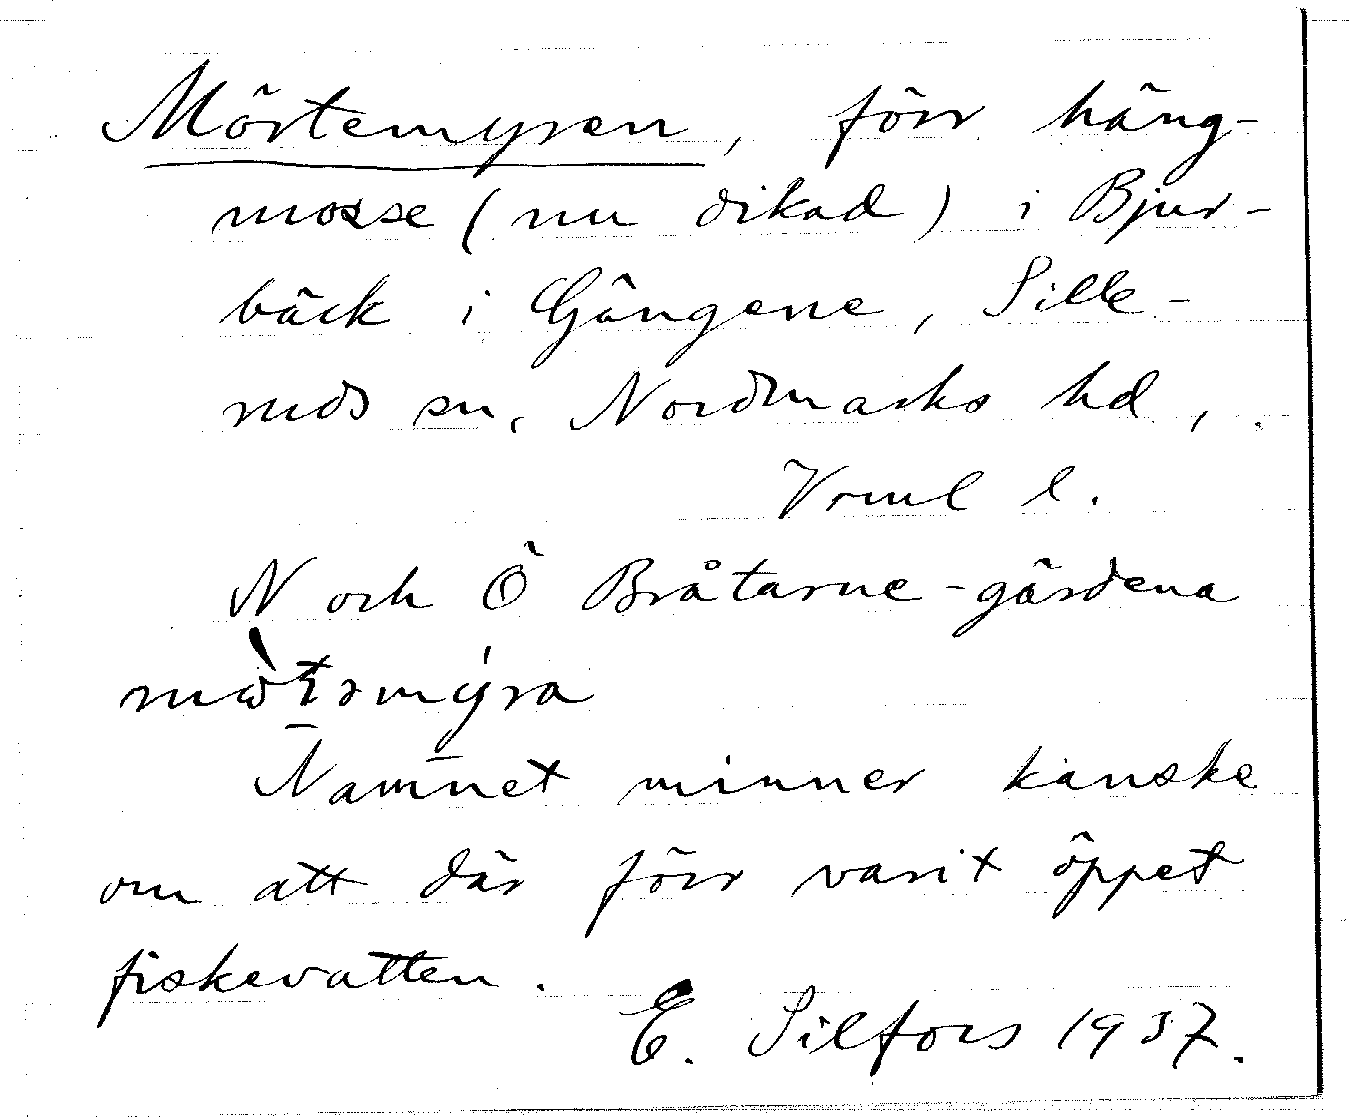 Mörtemyren, förr häng-
mosse (nu dikad) i Bjur-
bäck i Gängene, Sille-
ruds sn, Nordmarks hd,
Vrml l.
N och Ö Bråtarne-gärdena
Namnet minner kanske
om att där förr varit öppet
fiskevatten.
E. Silfors 1937.